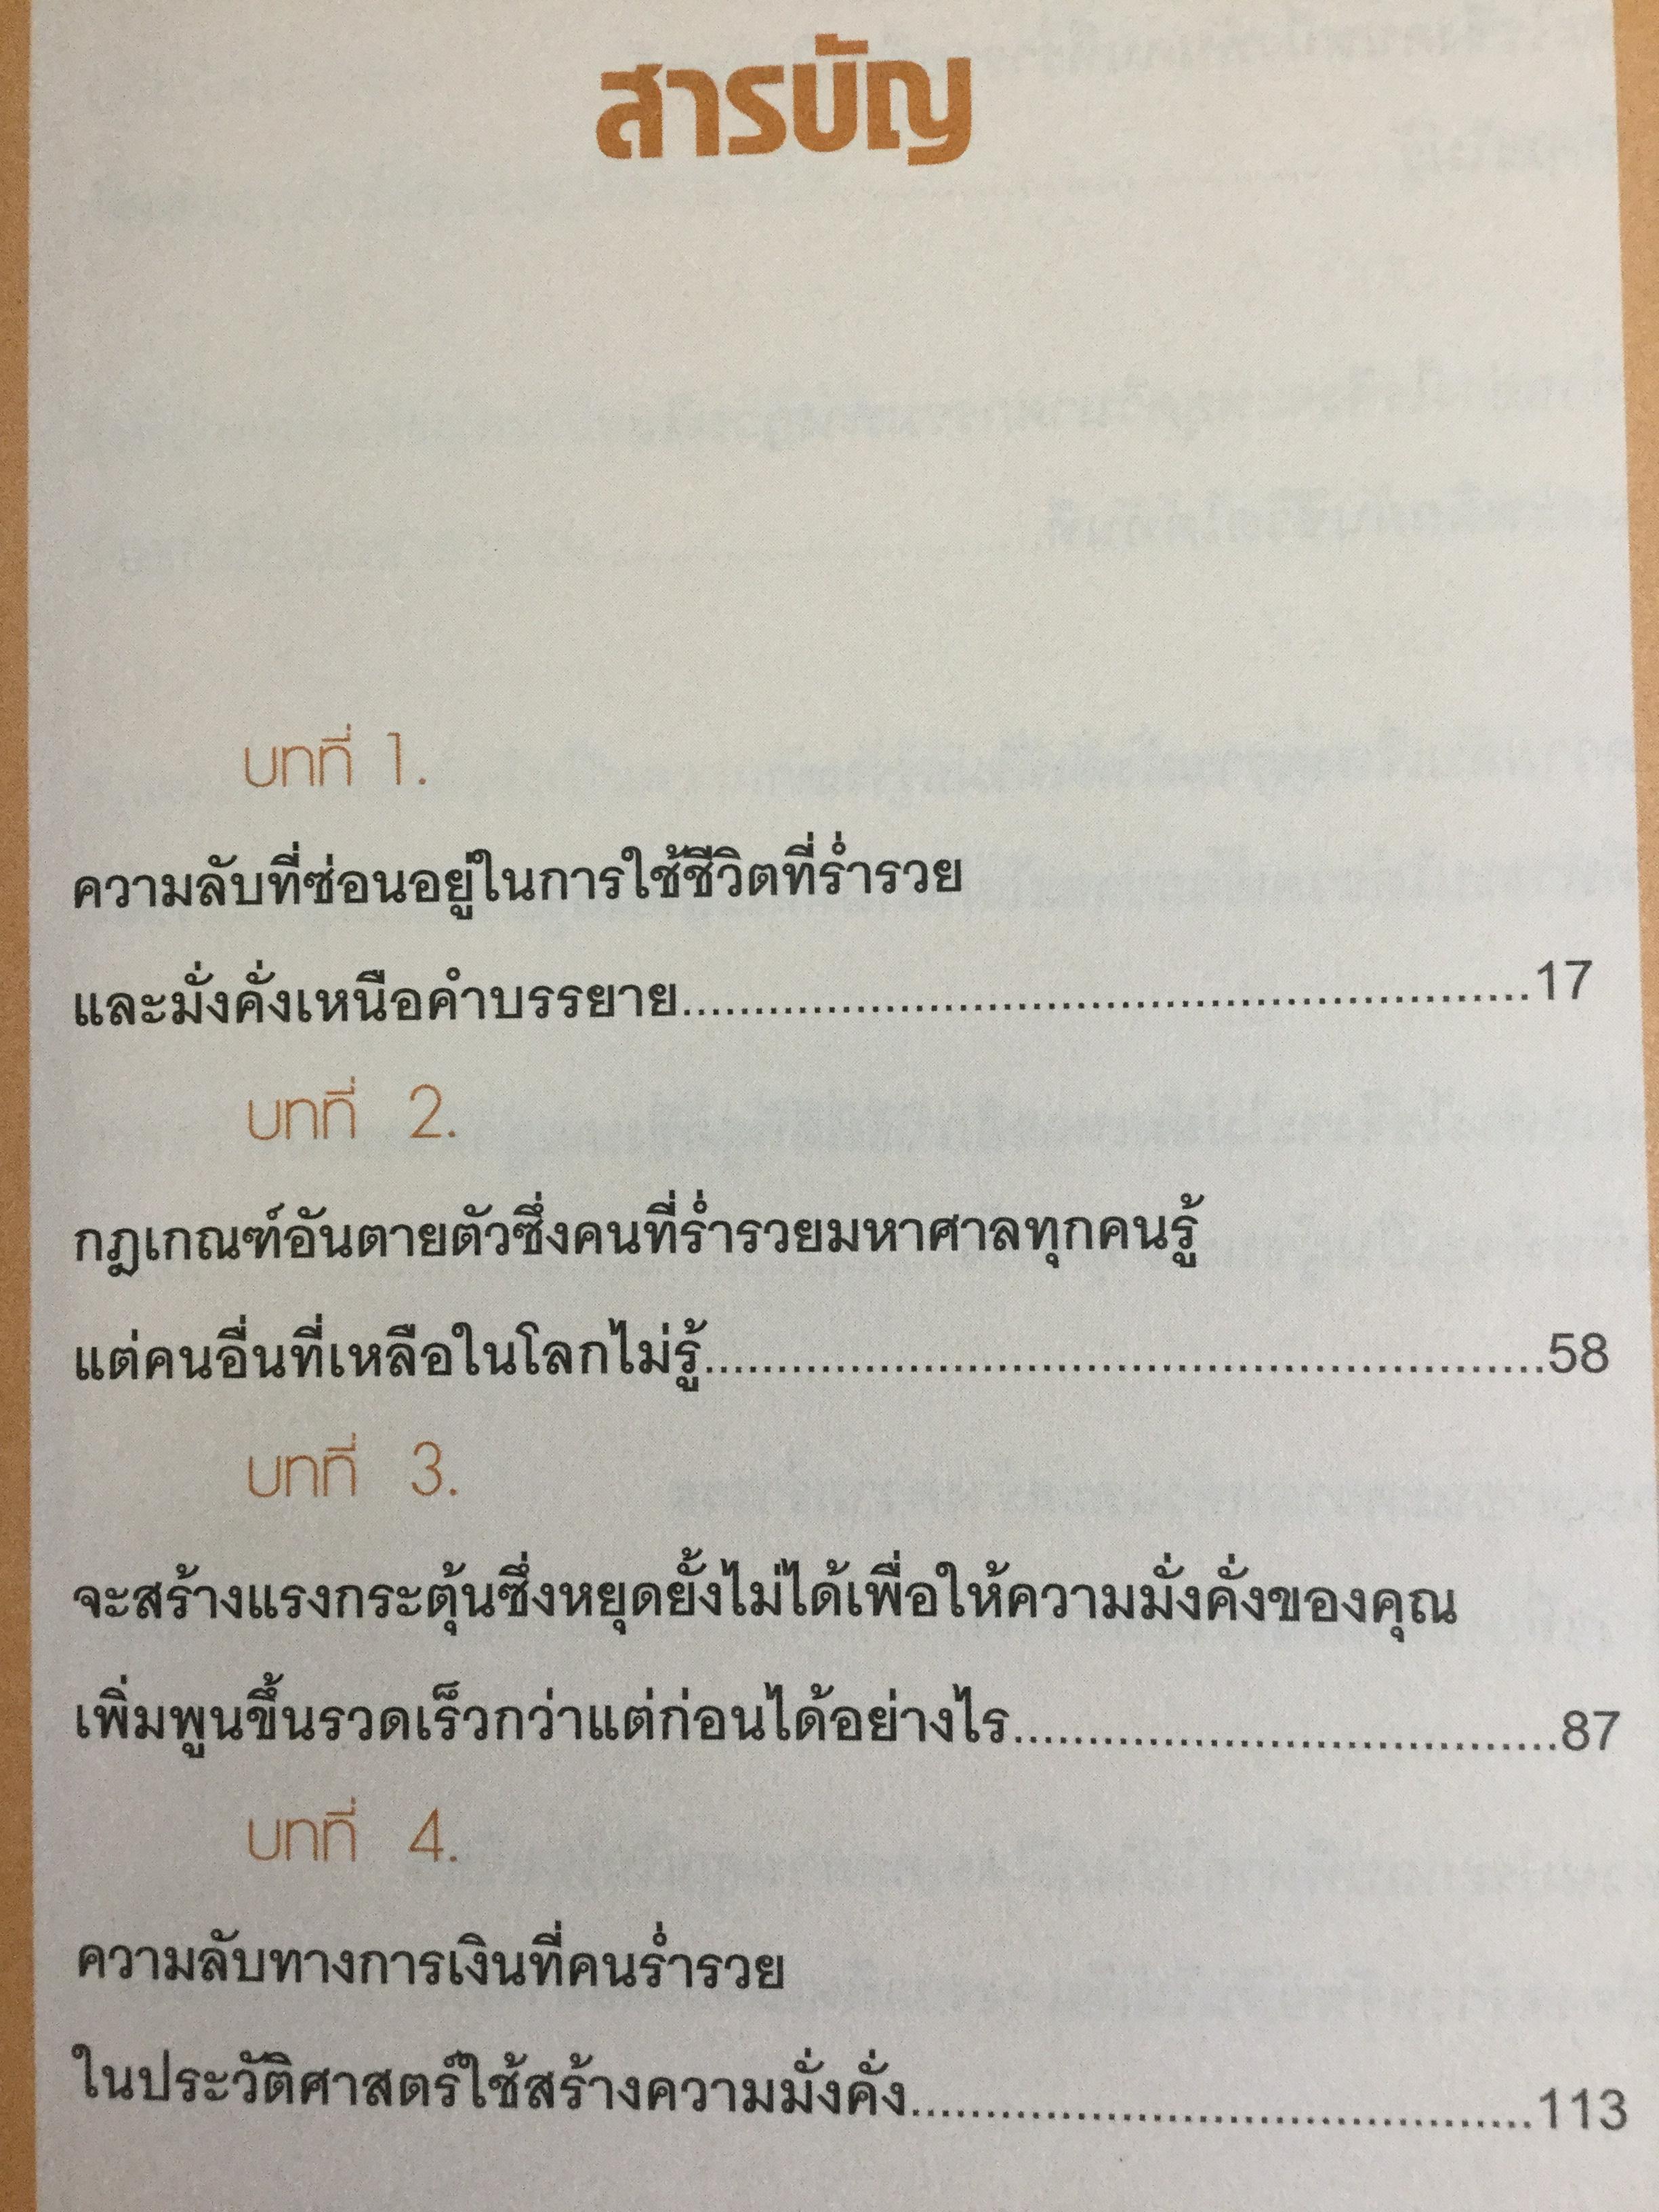 สารบัญ
บทที่ 1.
ความลับที่ซ่อนอยู่ในการใช้ชีวิตที่ร่ำรวย
และมั่งคั่งเหนือคำบรรยาย..........................................................17
บทที่ 2.
กฎเกณฑ์อันตายตัวซึ่งคนที่ร่ำรวยมหาศาลทุกคนรู้
แต่คนอื่นที่เหลือในโลกไม่รู้.........................................................58
บทที่ 3.
จะสร้างแรงกระตุ้นซึ่งหยุดยั้งไม่ได้เพื่อให้ความมั่งคั่งของคุณ
เพิ่มพูนขึ้นรวดเร็วกว่าแต่ก่อนได้อย่างไร.....................................87
บทที่ 4.
ความลับทางการเงินที่คนร่ำรวย
ในประวัติศาสตร์ใช้สร้างความมั่งคั่ง..........................................113